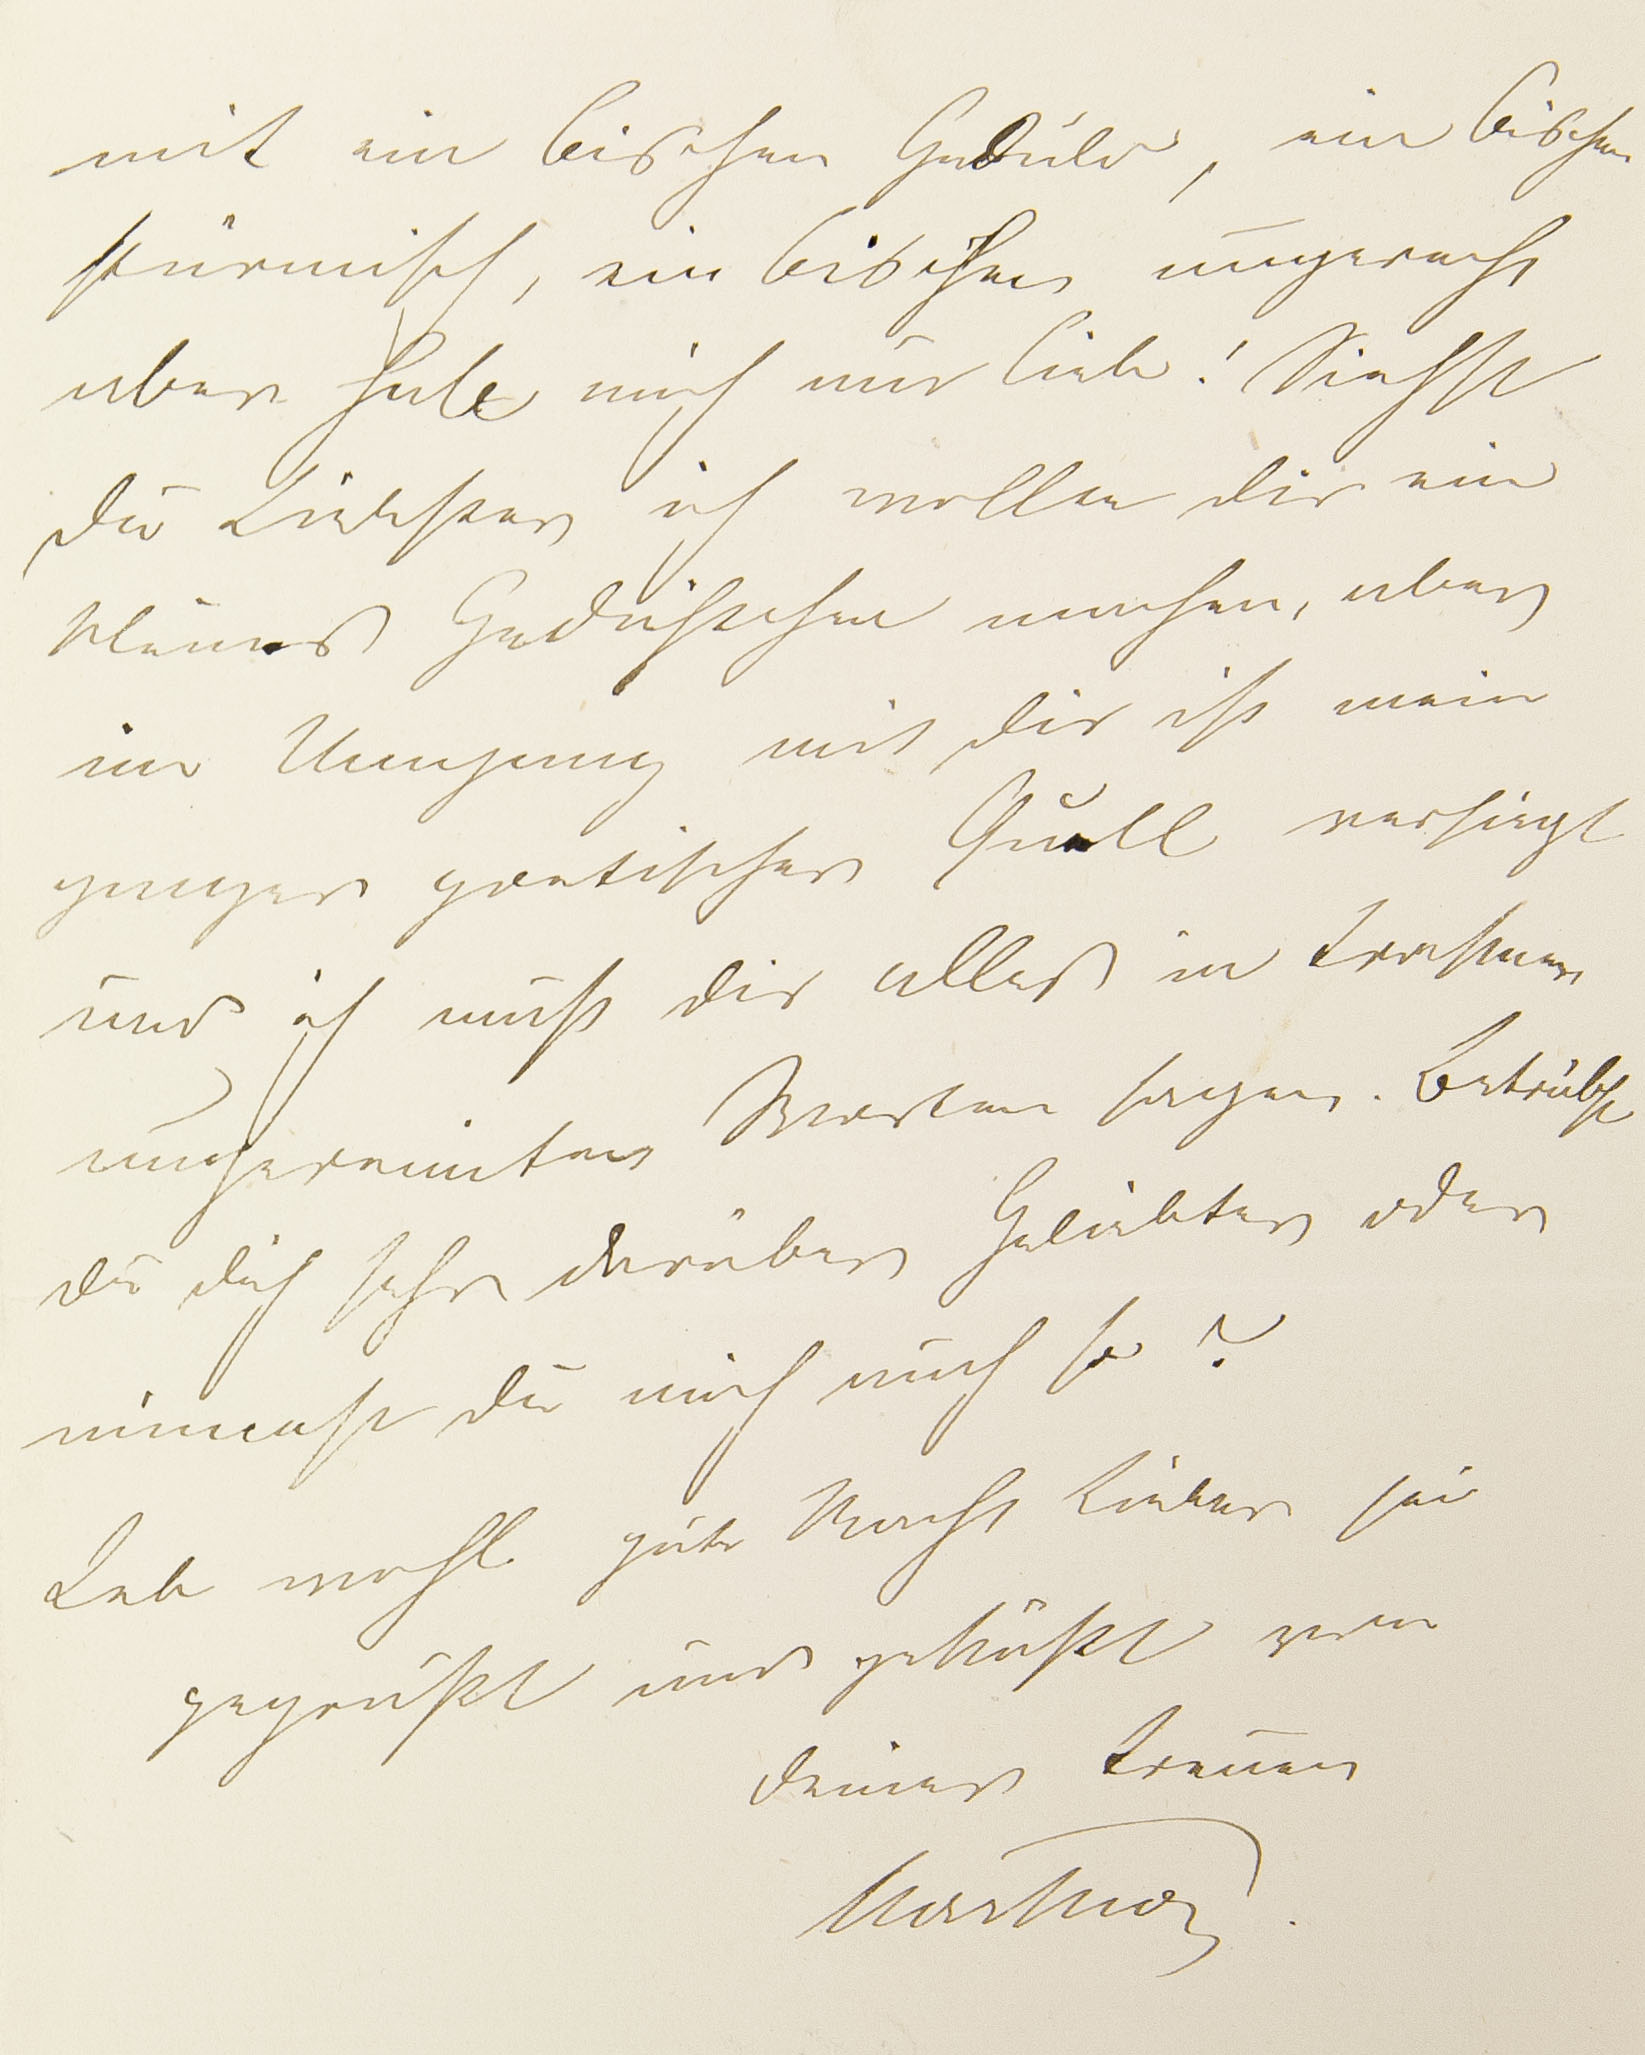 mit ein bischen Geduld, ein bischen
stürmisch, ein bischen ungerecht
aber habe mich nur lieb! Siehst
du Liebster ich wollte dir ein
kleines Gedichtchen machen, aber
im Umgang mit dir ist mein
ganzer poetischer Quell versiegt
und ich muß dir alles in trockenen
ungereimten Worten sagen. Betrübst
du dich sehr darüber Geliebter oder
nimmst du mich auch so?
Leb wohl gute Nacht Lieber sei
gegrüßt und geküßt von
deiner treuen